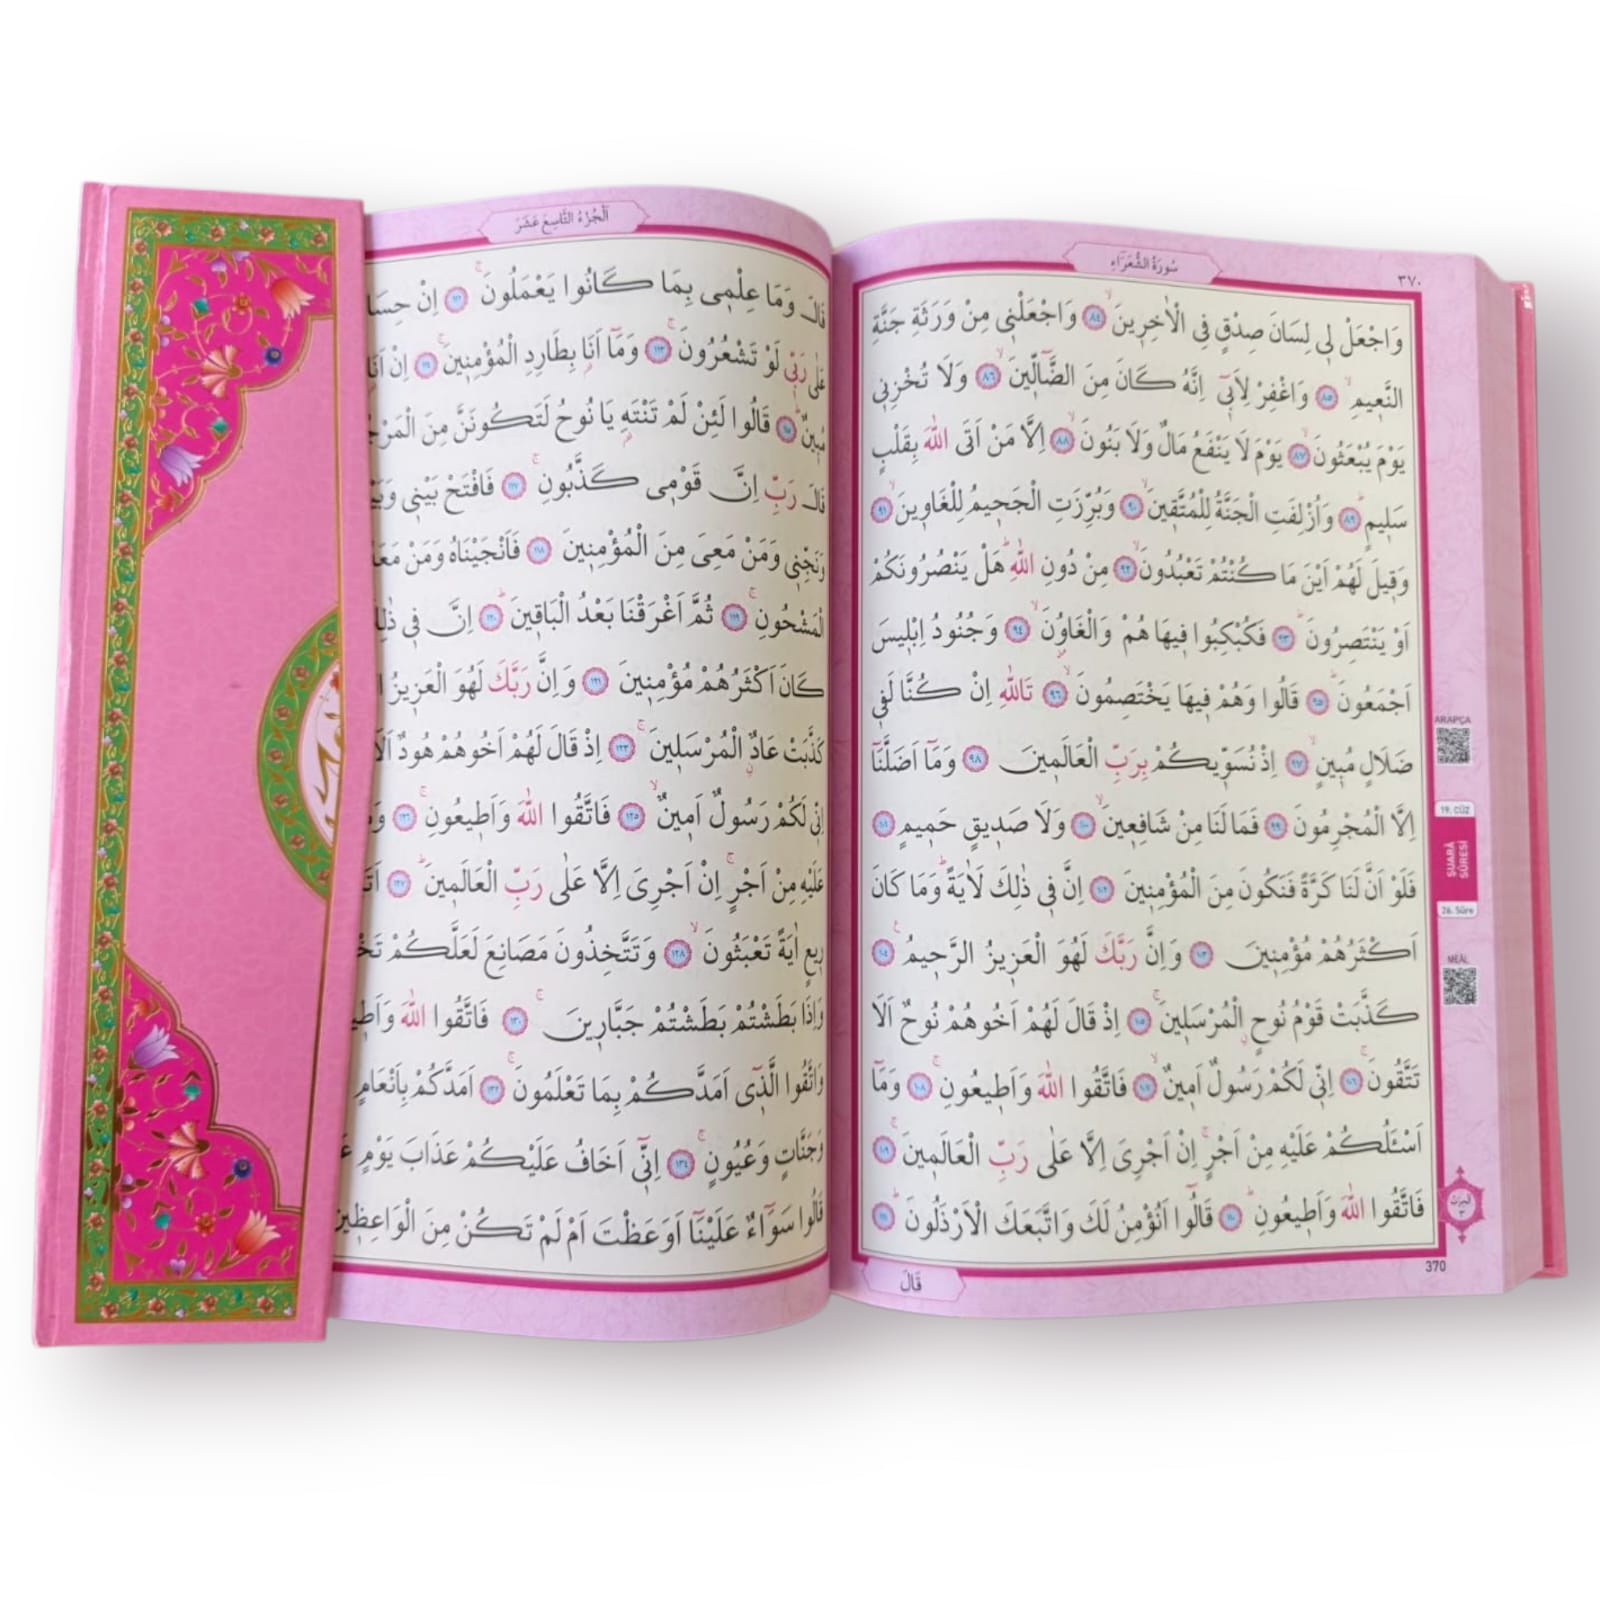 سُورَةُ الشُّعَرَاءِ
٣٧٠
وَاجْعَلْ ل۪ي لِسَانَ صِدْقٍ فِي الْاٰخِر۪ينَۙ ﴿٨٤﴾ وَاجْعَلْن۪ي مِنْ وَرَثَةِ جَنَّةِ
النَّع۪يمِۙ ﴿٨٥﴾ وَاغْفِرْ لِاَب۪ٓي اِنَّهُ كَانَ مِنَ الضَّٓالّ۪ينَۙ ﴿٨٦﴾ وَلَا تُخْزِن۪ي
يَوْمَ يُبْعَثُونَۙ ﴿٨٧﴾ يَوْمَ لَا يَنْفَعُ مَالٌ وَلَا بَنُونَۙ ﴿٨٨﴾ اِلَّا مَنْ اَتَى اللّٰهَ بِقَلْبٍ
سَل۪يمٍۜ ﴿٨٩﴾ وَاُزْلِفَتِ الْجَنَّةُ لِلْمُتَّق۪ينَۙ ﴿٩٠﴾ وَبُرِّزَتِ الْجَح۪يمُ لِلْغَاو۪ينَۙ ﴿٩١﴾
وَق۪يلَ لَهُمْ اَيْنَ مَا كُنْتُمْ تَعْبُدُونَۙ ﴿٩٢﴾ مِنْ دُونِ اللّٰهِۜ هَلْ يَنْصُرُونَكُمْ
اَوْ يَنْتَصِرُونَۜ ﴿٩٣﴾ فَكُبْكِبُوا ف۪يهَا هُمْ وَالْغَاوُ۫نَۙ ﴿٩٤﴾ وَجُنُودُ اِبْل۪يسَ
اَجْمَعُونَۜ ﴿٩٥﴾ قَالُوا وَهُمْ ف۪يهَا يَخْتَصِمُونَۙ ﴿٩٦﴾ تَاللّٰهِ اِنْ كُنَّا لَف۪ي
ضَلَالٍ مُب۪ينٍۙ ﴿٩٧﴾ اِذْ نُسَوّ۪يكُمْ بِرَبِّ الْعَالَم۪ينَ ﴿٩٨﴾ وَمَٓا اَضَلَّنَٓا
اِلَّا الْمُجْرِمُونَ ﴿٩٩﴾ فَمَا لَنَا مِنْ شَافِع۪ينَۙ ﴿١٠٠﴾ وَلَا صَد۪يقٍ حَم۪يمٍ ﴿١٠١﴾
فَلَوْ اَنَّ لَنَا كَرَّةً فَنَكُونَ مِنَ الْمُؤْمِن۪ينَ ﴿١٠٢﴾ اِنَّ ف۪ي ذٰلِكَ لَاٰيَةًۜ وَمَا كَانَ
اَكْثَرُهُمْ مُؤْمِن۪ينَ ﴿١٠٣﴾ وَاِنَّ رَبَّكَ لَهُوَ الْعَز۪يزُ الرَّح۪يمُ۟ ﴿١٠٤﴾
كَذَّبَتْ قَوْمُ نُوحٍ الْمُرْسَل۪ينَۚ ﴿١٠٥﴾ اِذْ قَالَ لَهُمْ اَخُوهُمْ نُوحٌ اَلَا
تَتَّقُونَۚ ﴿١٠٦﴾ اِنّ۪ي لَكُمْ رَسُولٌ اَم۪ينٌۙ ﴿١٠٧﴾ فَاتَّقُوا اللّٰهَ وَاَط۪يعُونِۚ ﴿١٠٨﴾ وَمَٓا
اَسْـَٔلُكُمْ عَلَيْهِ مِنْ اَجْرٍۚ اِنْ اَجْرِيَ اِلَّا عَلٰى رَبِّ الْعَالَم۪ينَۚ ﴿١٠٩﴾
فَاتَّقُوا اللّٰهَ وَاَط۪يعُونِۜ ﴿١١٠﴾ قَالُٓوا اَنُؤْمِنُ لَكَ وَاتَّبَعَكَ الْاَرْذَلُونَۜ ﴿١١١﴾
قَالَ
370
ARAPÇA
19. CÜZ
ŞUARÂ
SÛRESİ
26. Sûre
MEÂL
اَلْجُزْءُ التَّاسِعَ عَشَرَ
قَالَ وَمَا عِلْم۪ي بِمَا كَانُوا يَعْمَلُونَۚ ﴿١١٢﴾ اِنْ
عَلٰى رَبّ۪ي لَوْ تَشْعُرُونَۚ ﴿١١٣﴾ وَمَٓا اَنَا۬ بِطَارِدِ الْمُؤْمِن۪ينَۚ ﴿١١٤﴾ اِنْ اَنَا۬
مُب۪ينٌۜ ﴿١١٥﴾ قَالُوا لَئِنْ لَمْ تَنْتَهِ يَا نُوحُ لَتَكُونَنَّ مِنَ
قَالَ رَبِّ اِنَّ قَوْم۪ي كَذَّبُونِۚ ﴿١١٧﴾ فَافْتَحْ بَيْن۪ي
وَنَجِّن۪ي وَمَنْ مَعِيَ مِنَ الْمُؤْمِن۪ينَ ﴿١١٨﴾ فَاَنْجَيْنَاهُ وَمَنْ
الْمَشْحُونِۚ ﴿١١٩﴾ ثُمَّ اَغْرَقْنَا بَعْدُ الْبَاق۪ينَۜ ﴿١٢٠﴾ اِنَّ ف۪ي
كَانَ اَكْثَرُهُمْ مُؤْمِن۪ينَ ﴿١٢١﴾ وَاِنَّ رَبَّكَ لَهُوَ الْعَز۪يزُ
كَذَّبَتْ عَادٌ الْمُرْسَل۪ينَۚ ﴿١٢٣﴾ اِذْ قَالَ لَهُمْ اَخُوهُمْ هُودٌ اَلَا
اِنّ۪ي لَكُمْ رَسُولٌ اَم۪ينٌۙ ﴿١٢٥﴾ فَاتَّقُوا اللّٰهَ وَاَط۪يعُونِۚ ﴿١٢٦﴾
عَلَيْهِ مِنْ اَجْرٍۚ اِنْ اَجْرِيَ اِلَّا عَلٰى رَبِّ الْعَالَم۪ينَۜ ﴿١٢٧﴾
ر۪يعٍ اٰيَةً تَعْبَثُونَۙ ﴿١٢٨﴾ وَتَتَّخِذُونَ مَصَانِعَ لَعَلَّكُمْ
وَاِذَا بَطَشْتُمْ بَطَشْتُمْ جَبَّار۪ينَۚ ﴿١٣٠﴾ فَاتَّقُوا اللّٰهَ
وَاتَّقُوا الَّذ۪ٓي اَمَدَّكُمْ بِمَا تَعْلَمُونَۚ ﴿١٣٢﴾ اَمَدَّكُمْ بِاَنْعَامٍ
وَجَنَّاتٍ وَعُيُونٍۚ ﴿١٣٤﴾ اِنّ۪ٓي اَخَافُ عَلَيْكُمْ عَذَابَ يَوْمٍ
قَالُوا سَوَٓاءٌ عَلَيْنَٓا اَوَعَظْتَ اَمْ لَمْ تَكُنْ مِنَ الْوَاعِظ۪ينَ